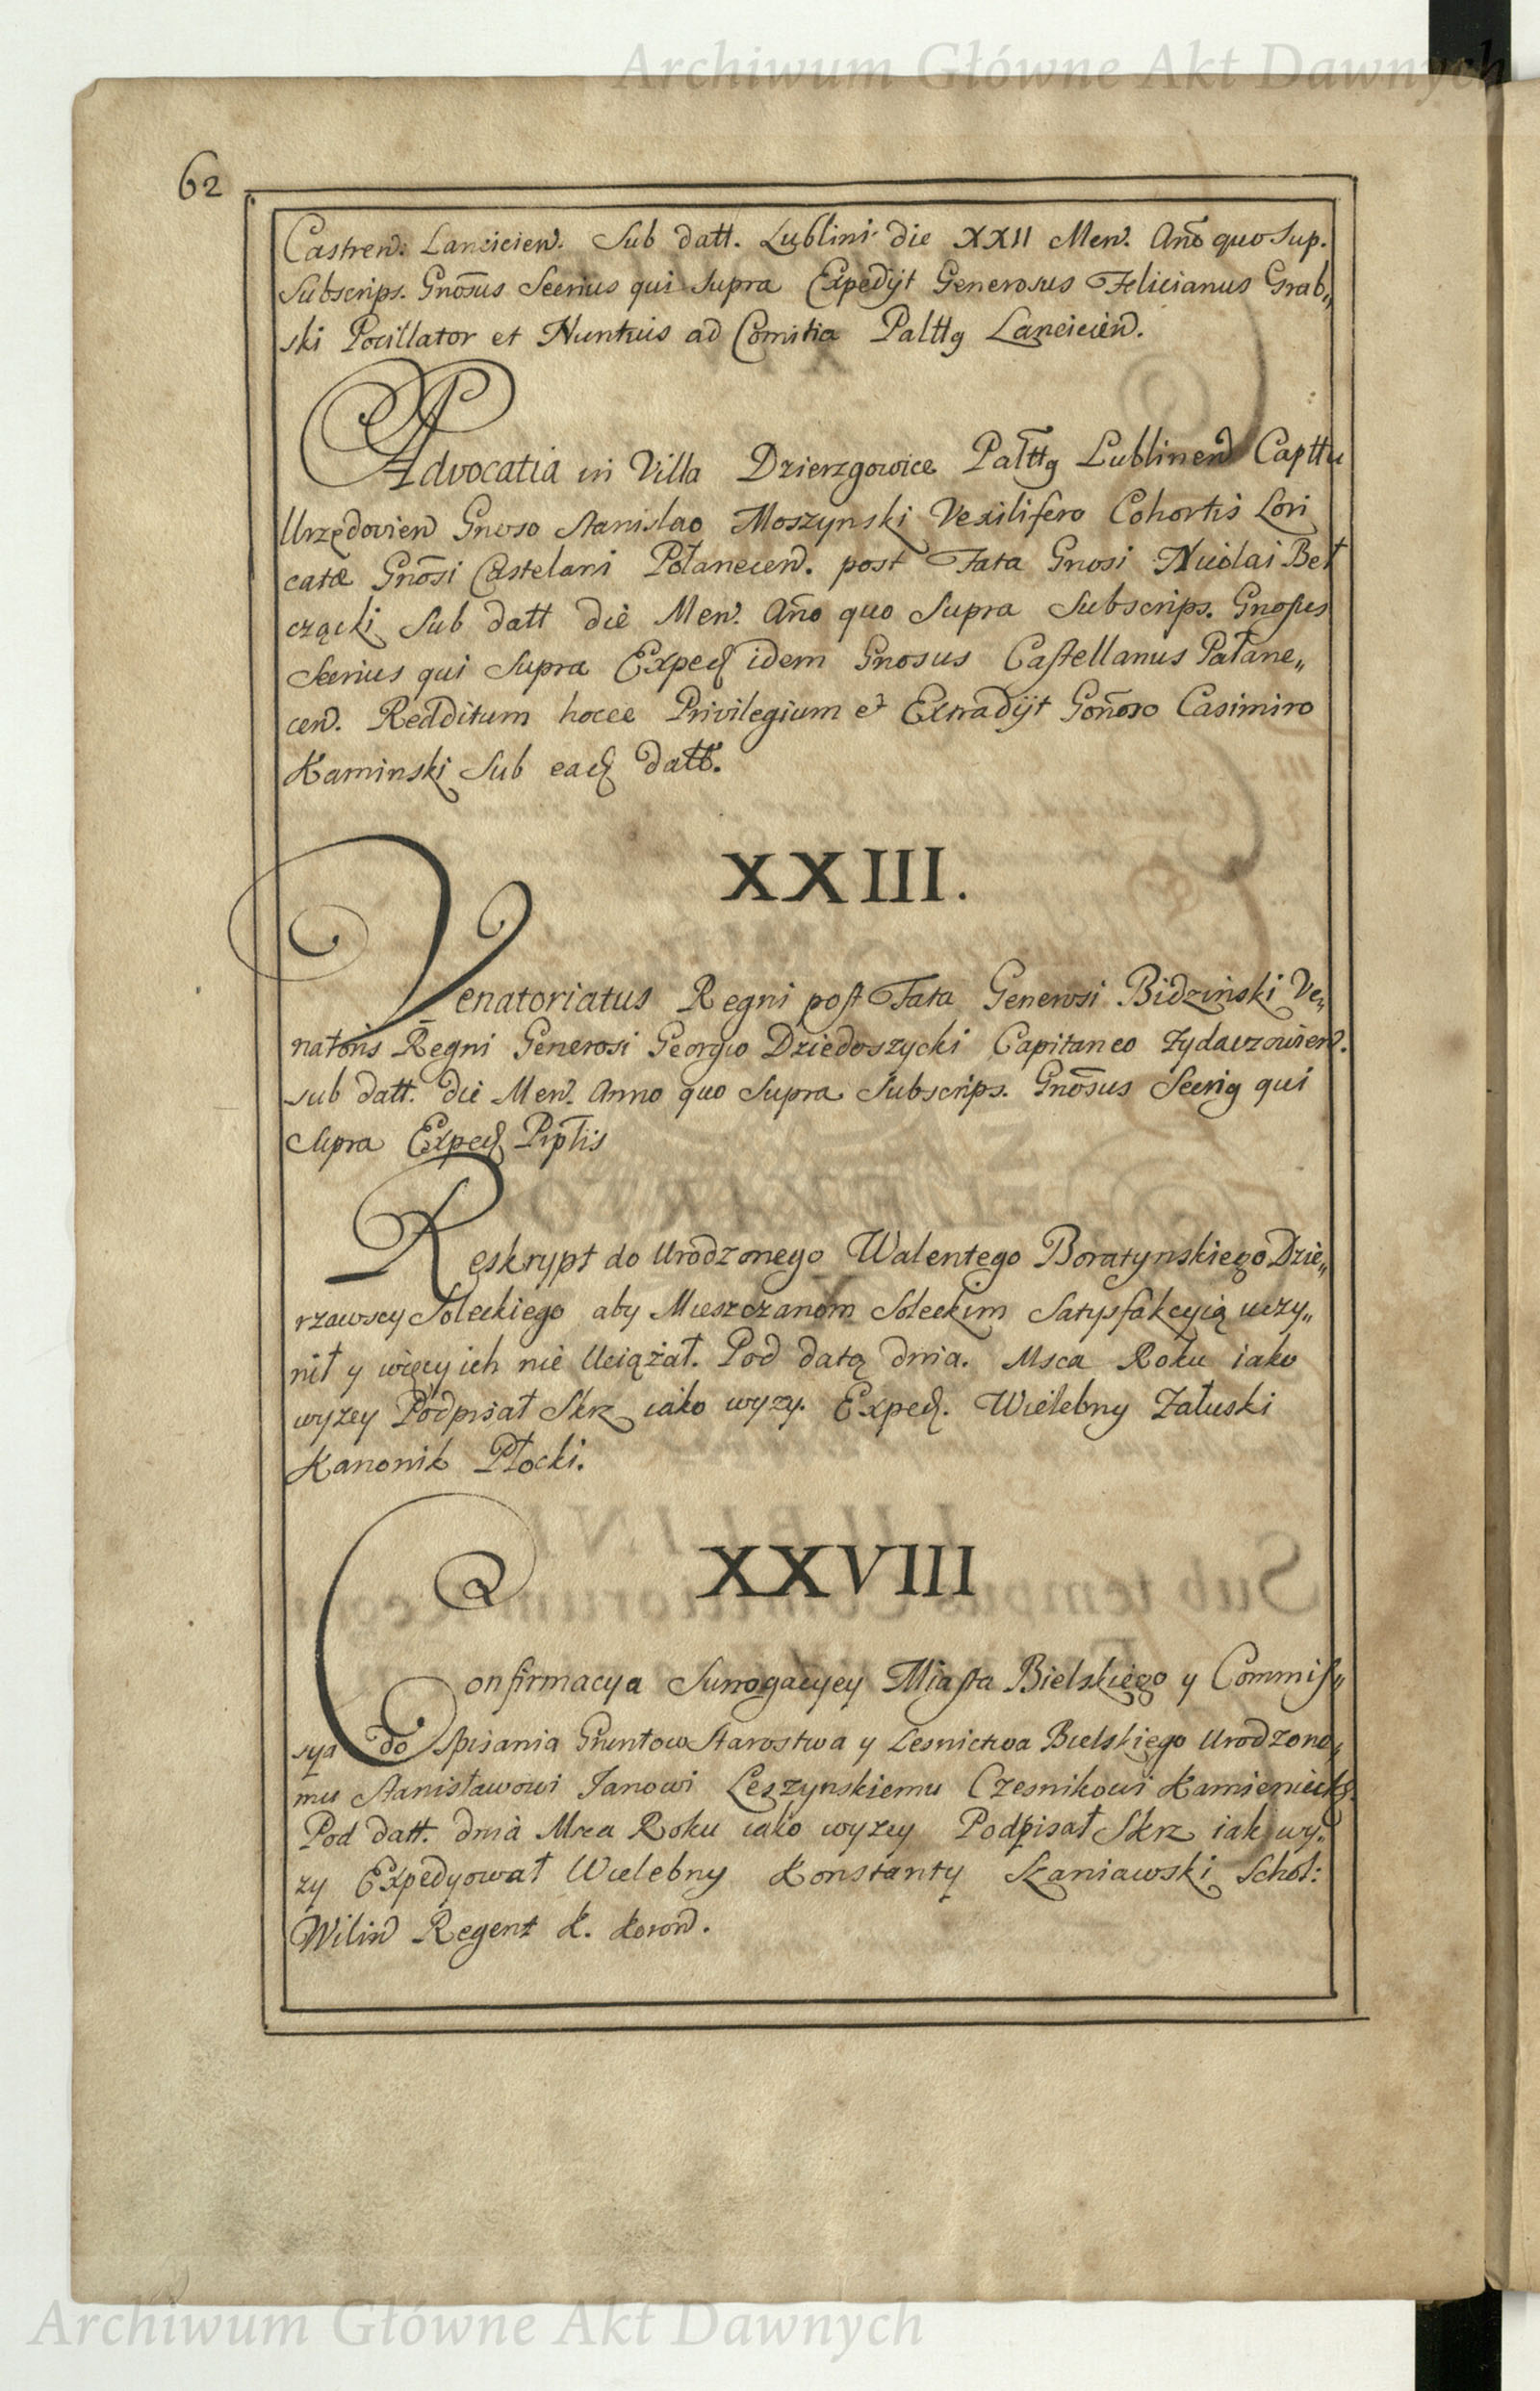 Archiwum Główne Akt Dawnych
62
Castren: Lancicien. Sub datt. Lublini die XXII Men. Año quo Sup.
Subscrips. Gnōsus Secrius qui supra Expedijt Generosus Felicianus Grab„
ski Pocillator et Nuntius ad Comitia Palttg Lancicien.
Advocatia in Villa Dzierzgowice Palttg Lublinen Capttu
Urzędovien Gnoso Stanislao Moszynski Vexilifero Cohortis Lori
catæ Gnōsi Castelani Połanecen. post Fata Gnosi Nicolai Beł
czącki Sub datt die Men. Año quo Supra Subscrips. Gnosus
Secrius qui Supra Exped idem Gnosus Castellanus Połane„
cen. Redditum hocce Privilegium et Extradijt Gnōso Casimiro
Kaminski Sub ead datt.
XXIII.
Venatoriatus Regni post Fata Generosi Bidzinski Ve„
natoris Regni Generosi Georgio Dziedoszycki Capitaneo Zydaczowien.
sub datt. die Men. Anno quo Supra Subscrips. Gnōsus Secrig qui
Supra Exped Pnptis
Reskrypt do Urodzonego Walentego Boratynskiego Dzie„
rzawscy Soleckiego aby Mieszczanom Soleckim Satysfakcyią uczy„
nił y więcy ich nie Uciążał. Pod datą dnia. Msca Roku iako
wyzey Podpisał Skr iako wyzy. Exped. Wielebny Załuski
Kanonik Płocki.
XXVIII
Confirmacya Surrogacyey Miasta Bielskiego y Commis„
sya do Spisania Gruntow Starostwa y Lesnictwa Bielskiego Urodzone„
mu Stanisławowi Janowi Leszynskiemu Czesnikowi Kamienieck.
Pod datt. dnia Msca Roku iako wyzey Podpisał Skr iak wy„
zy Expedyował Wielebny Konstanty Szaniawski Schol:
Wilin Regent K. Koron.
Archiwum Główne Akt Dawnych